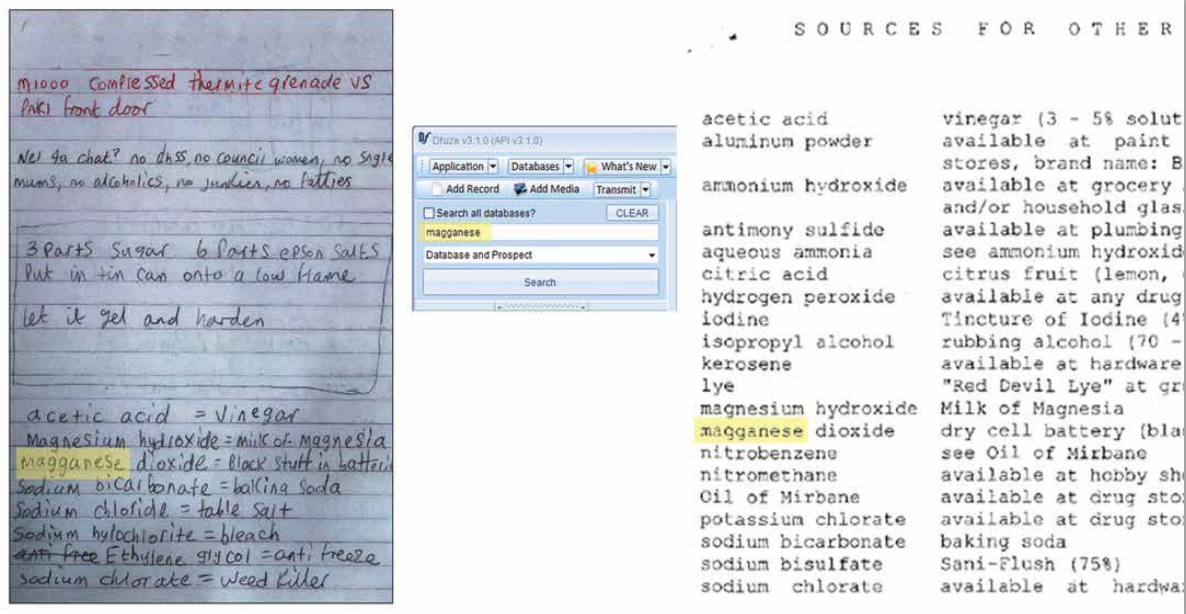 m1000 Compressed thermite grenade VS
PAKI front door
no dhss, no council women, no Sngle
mums, no alcoholics, no junkies, no fatties
3 Parts Sugar 6 Parts epson Salts
Put in tin Can onto a low flame
let it gel and harden
acetic acid = Vinegar
Magnesium hydroxide = milk of magnesia
magganese dioxide = Black Stuff in batterie
Sodium bicarbonate = baking Soda
Sodium chloride = table Salt
Sodium hylochlorite = bleach
anti free Ethylene glycol = anti freeze
Sodium chlorate = Weed Killer
Dfuze v3.1.0 (API v3.1.0)
Application Databases What's New
Add Record Add Media Transmit
Search all databases? CLEAR
magganese
Database and Prospect
Search
SOURCES FOR OTHER
acetic acid vinegar (3 - 5% solut
aluminum powder available at paint
stores, brand name: B
ammonium hydroxide available at grocery
and/or household glas
antimony sulfide available at plumbing
aqueous ammonia see ammonium hydroxid
citric acid citrus fruit (lemon,
hydrogen peroxide available at any drug
iodine Tincture of Iodine (4
isopropyl alcohol rubbing alcohol (70 -
kerosene available at hardware
lye "Red Devil Lye" at gr
magnesium hydroxide Milk of Magnesia
magganese dioxide dry cell battery (bla
nitrobenzene see Oil of Mirbane
nitromethane available at hobby sh
Oil of Mirbane available at drug sto
potassium chlorate available at drug sto
sodium bicarbonate baking soda
sodium bisulfate Sani-Flush (75%)
sodium chlorate available at hardwa